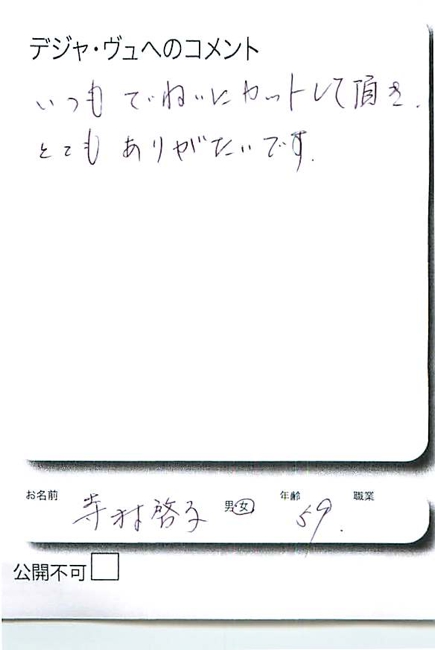 デジャ・ヴュへのコメント
いつもていねいにカットして頂き、
とてもありがたいです。
お名前 寺村啓子 男女 年齢 59. 職業
公開不可